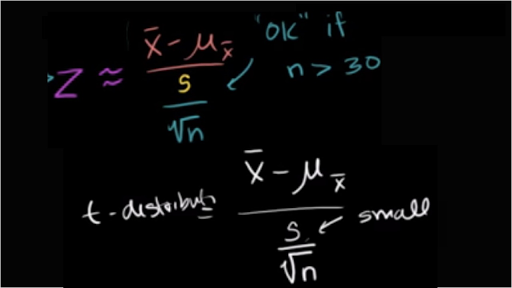 Z ≈ (x̄ - μ_x̄) / (s / √n) "OK" if
n > 30
t-distribut = (x̄ - μ_x̄) / (s / √n) small